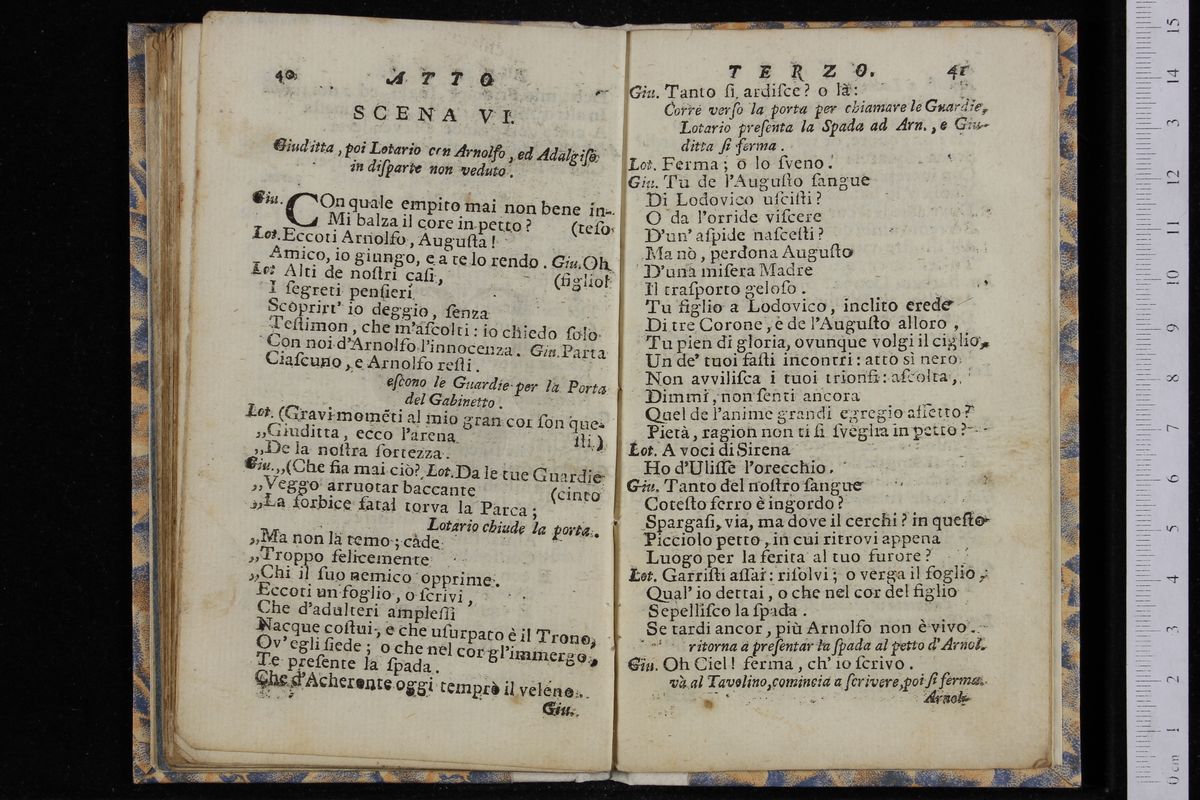 40 ATTO
SCENA VI.
Giuditta, poi Lotario con Arnolfo, ed Adalgiso
in diſparte non veduto.
Giu. COn quale empito mai non bene in-
Mi balza il core in petto? (teſo
Lot. Eccoti Arnolfo, Auguſta!
Amico, io giungo, e a te lo rendo. Giu. Oh
Lot Alti de noſtri caſi, (figlio!
I ſegreti penſieri
Scoprirt' io deggio, ſenza
Teſtimon, che m'aſcolti: io chiedo ſolo
Con noi d'Arnolfo l'innocenza. Giu. Parta
Ciaſcuno, e Arnolfo reſti.
eſcono le Guardie per la Porta
del Gabinetto.
Lot. (Gravi momẽti al mio gran cor ſon que-
„Giuditta, ecco l'arena ſti.)
„De la noſtra fortezza.
Giu. „(Che fia mai ciò? Lot. Da le tue Guardie
„Veggo arruotar baccante (cinto
„La forbice fatal torva la Parca;
Lotario chiude la porta.
„Ma non la temo; cade
„Troppo felicemente
„Chi il ſuo nemico opprime.
Eccoti un foglio, o ſcrivi,
Che d'adulteri ampleſſi
Nacque coſtui, e che uſurpato è il Trono,
Ov' egli ſiede; o che nel cor gl'immergo,
Te preſente la ſpada.
Che d'Acheronte oggi temprò il veleno.
Giu.
TERZO. 41
Giu. Tanto ſi ardiſce? o là:
Corre verſo la porta per chiamare le Guardie,
Lotario preſenta la Spada ad Arn., e Giu-
ditta ſi ferma.
Lot. Ferma; o lo ſveno.
Giu. Tu de l'Auguſto ſangue
Di Lodovico uſciſti?
O da l'orride viſcere
D'un' aſpide naſceſti?
Ma nò, perdona Auguſto
D'una miſera Madre
Il traſporto geloſo.
Tu figlio a Lodovico, inclito erede
Di tre Corone, e de l'Auguſto alloro,
Tu pien di gloria, ovunque volgi il ciglio,
Un de' tuoi faſti incontri: atto sì nero
Non avviliſca i tuoi trionfi: aſcolta,
Dimmi, non ſenti ancora
Quel de l'anime grandi egregio affetto?
Pietà, ragion non ti ſi ſveglia in petto?
Lot. A voci di Sirena
Ho d'Uliſſe l'orecchio.
Giu. Tanto del noſtro ſangue
Coteſto ferro è ingordo?
Spargaſi, via, ma dove il cerchi? in queſto
Picciolo petto, in cui ritrovi appena
Luogo per la ferita al tuo furore?
Lot. Garriſti aſſai: riſolvi; o verga il foglio,
Qual' io dettai, o che nel cor del figlio
Sepelliſco la ſpada.
Se tardi ancor, più Arnolfo non è vivo.
ritorna a preſentar la ſpada al petto d'Arnol.
Giu. Oh Ciel! ferma, ch' io ſcrivo.
và al Tavolino, comincia a ſcrivere, poi ſi ferma.
Arnol-
15
14
3
12
11
10
9
8
7
6
5
4
3
2
1
0 cm